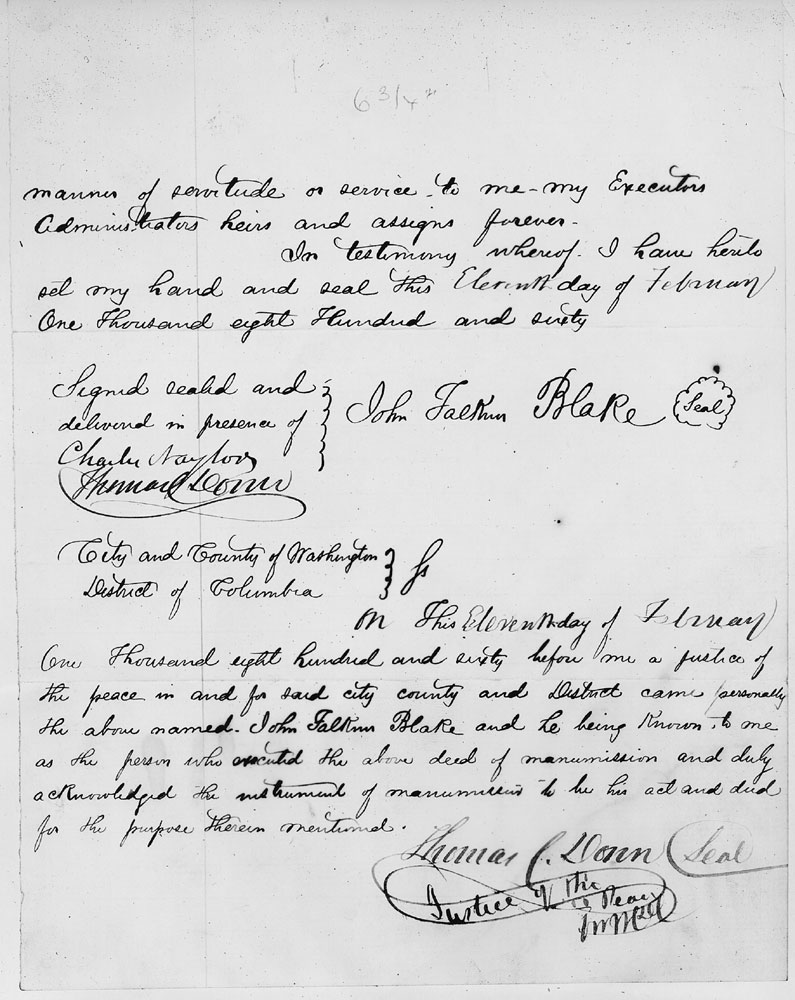 6 3/4"
manner of servitude or service to me - my Executors
Administrators heirs and assigns forever -
In testimony whereof. I have hereto
set my hand and seal this Eleventh day of February
One Thousand eight Hundred and sixty
Signed sealed and
delivered in presence of
Charles Naylor
Thomas C Donn
John Falkner Blake Seal
City and County of Washington
District of Columbia ss
On This Eleventh day of February
One Thousand eight hundred and sixty before me a justice of
the peace in and for said city county and District came personally
the above named - John Falkner Blake and he being Known to me
as the person who executed the above deed of manumission and duly
acknowledged the instrument of manumission to be his act and deed
for the purpose therein mentioned.
Thomas C. Donn Seal
Justice of the
Peace